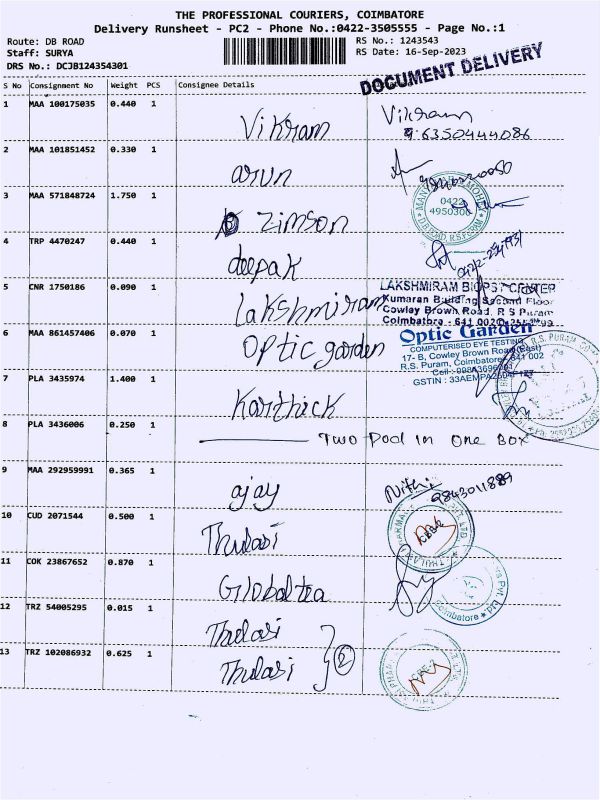 THE PROFESSIONAL COURIERS, COIMBATORE
Delivery Runsheet - PC2 - Phone No.:0422-3505555 - Page No.:1
Route: DB ROAD
Staff: SURYA
DRS No.: DCJB124354301
RS No.: 1243543
RS Date: 16-Sep-2023
DOCUMENT DELIVERY
S No Consignment No Weight PCS Consignee Details
1 MAA 100175035 0.440 1 Vikram Vikram
9:6350444086
2 MAA 101851452 0.330 1 arun
3 MAA 571848724 1.750 1 Zimson
0422
4950300
D.B.ROAD, R.S.PURAM
4 TRP 4470247 0.440 1 deepak
5 CNR 1750186 0.090 1 Lakshmiram
LAKSHMIRAM BIOPSY CENTER
Kumaran Building Second Floor
Cowley Brown Road, R S Puram
Coimbatore - 641 002
6 MAA 861457406 0.070 1 Optic garden
Optic Garden
COMPUTERISED EYE TESTING
17- B, Cowley Brown Road (East)
R.S. Puram, Coimbatore - 641 002
Cell :
GSTIN :
7 PLA 3435974 1.400 1 Karthick
R.S. PURAM
8 PLA 3436006 0.250 1 Two Pod in One Box
9 MAA 292959991 0.365 1 ajay Nithi
9843011889
10 CUD 2071544 0.500 1 Thulasi
11 COK 23867652 0.870 1 Global tea
Coimbatore
12 TRZ 54005295 0.015 1 Thulasi
13 TRZ 102086932 0.625 1 Thulasi
2